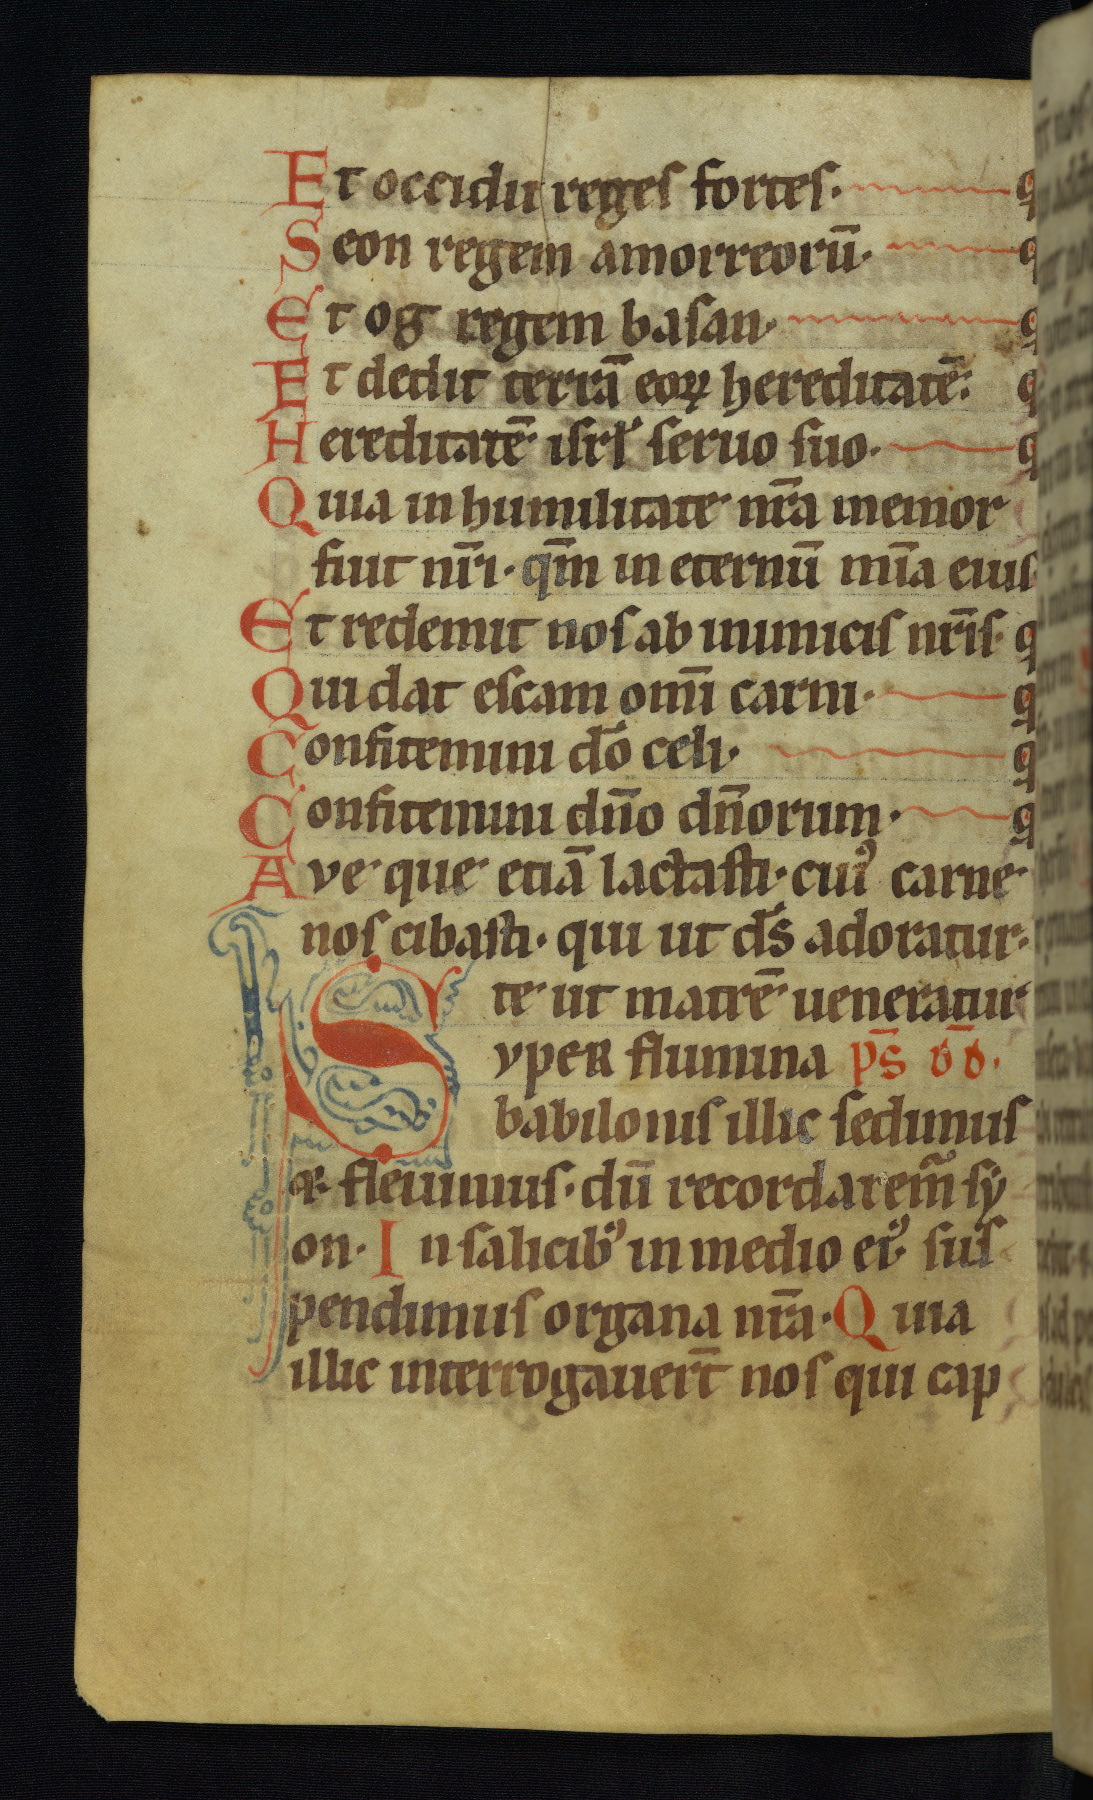 Et occidit reges fortes. q
Seon regem amorreorū. q
Et og regem basan. q
Et dedit terrā eoꝝ hereditatē. q
Hereditatē isrl' seruo suo. q
Quia in humilitate nr̄a memor
fuit nr̄i. qm̄ in eternū mīa eius
Et redemit nos ab inimicis nr̄is. q
Qui dat escam omī carni. q
Confitemini dō celi. q
Confitemini dn̄o dn̄orum. q
Ave que etiā lactasti. cuiꝰ carne
nos cibasti. qui ut ds̄ adoratur.
te ut matrē ueneratur
Syper flumina ps̄ dd̄.
babilonis illic sedimus
⁊ fleuimus. dū recordaremᷣ sy
on. In salicibꝰ in medio eiꝰ sus
pendimus organa nr̄a. Quia
illic interrogauert̄ nos qui cap